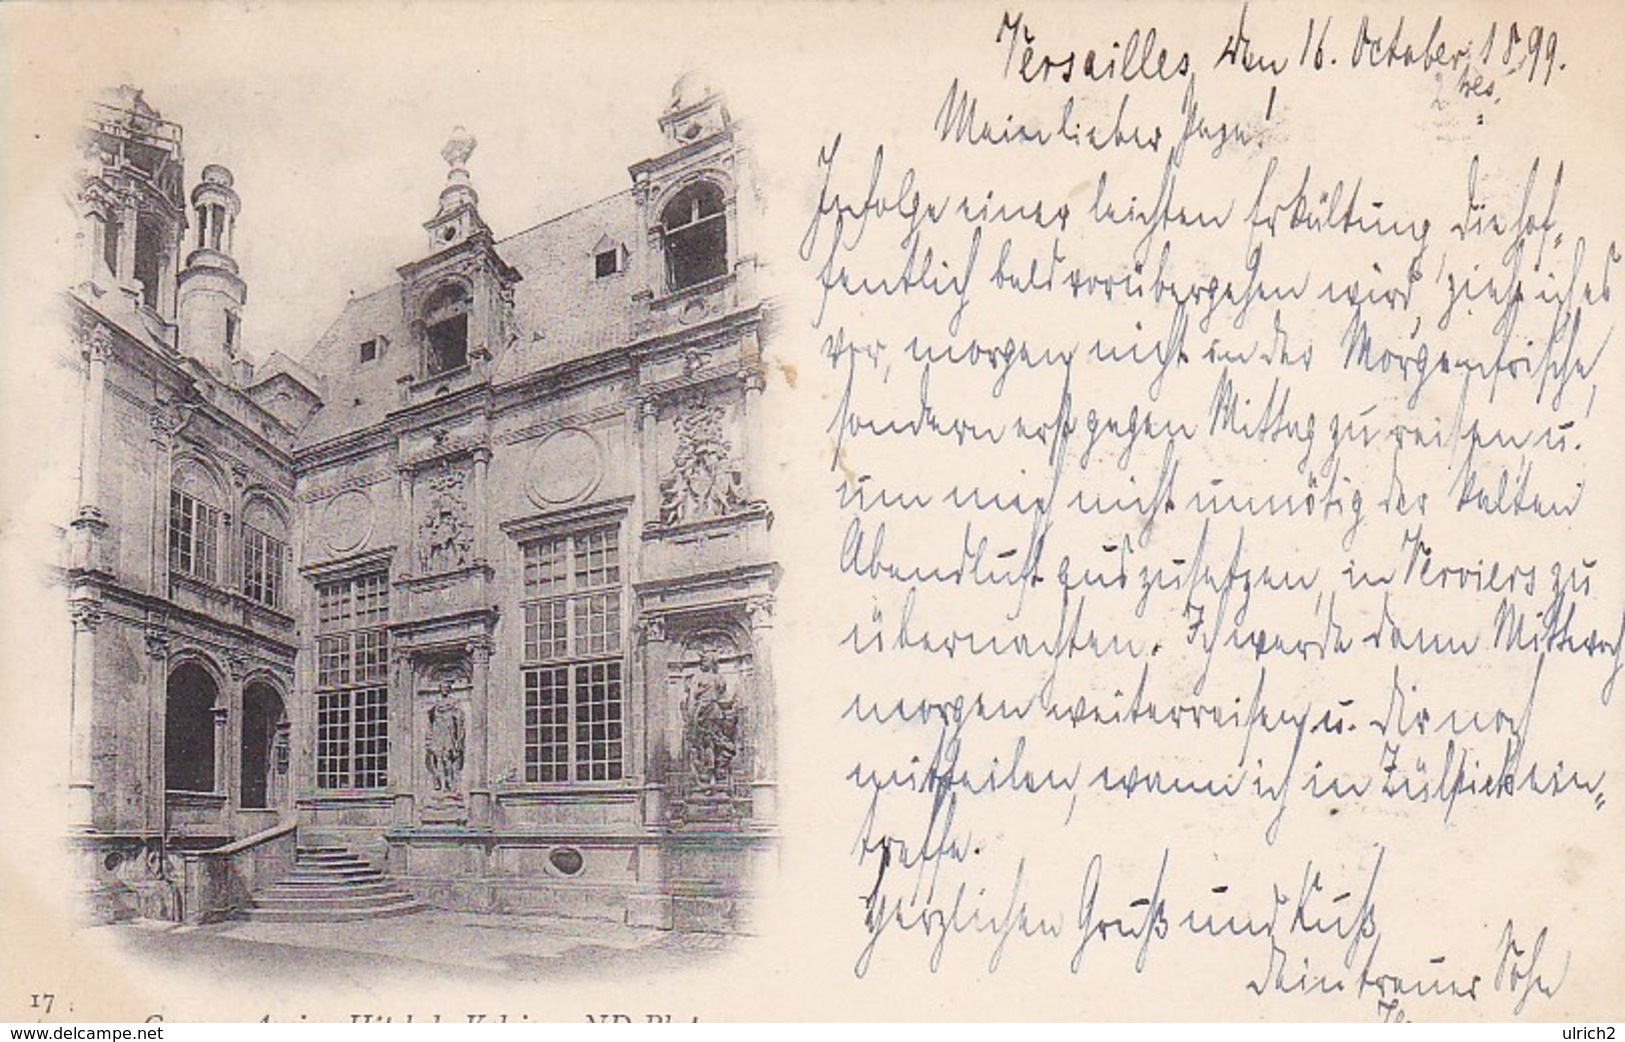 Versailles, den 16. October 1899.
Mein lieber Papa!
Infolge einer leichten Erkältung, die hof-
fentlich bald vorübergehen wird, ziehe ich es
vor, morgen nicht in der Morgenfrische,
sondern erst gegen Mittag zu reisen, u.
um mich nicht unnötig der kalten
Abendluft auszusetzen, in Verviers zu
übernachten. Ich werde dann Mittwoch
morgen weiterreisen u. Dir noch
mitteilen, wann ich in Zülpich ein-
treffe.
Herzlichen Gruß und Kuß
Dein treuer Sohn
17
ND Phot
www.delcampe.net
ulrich2